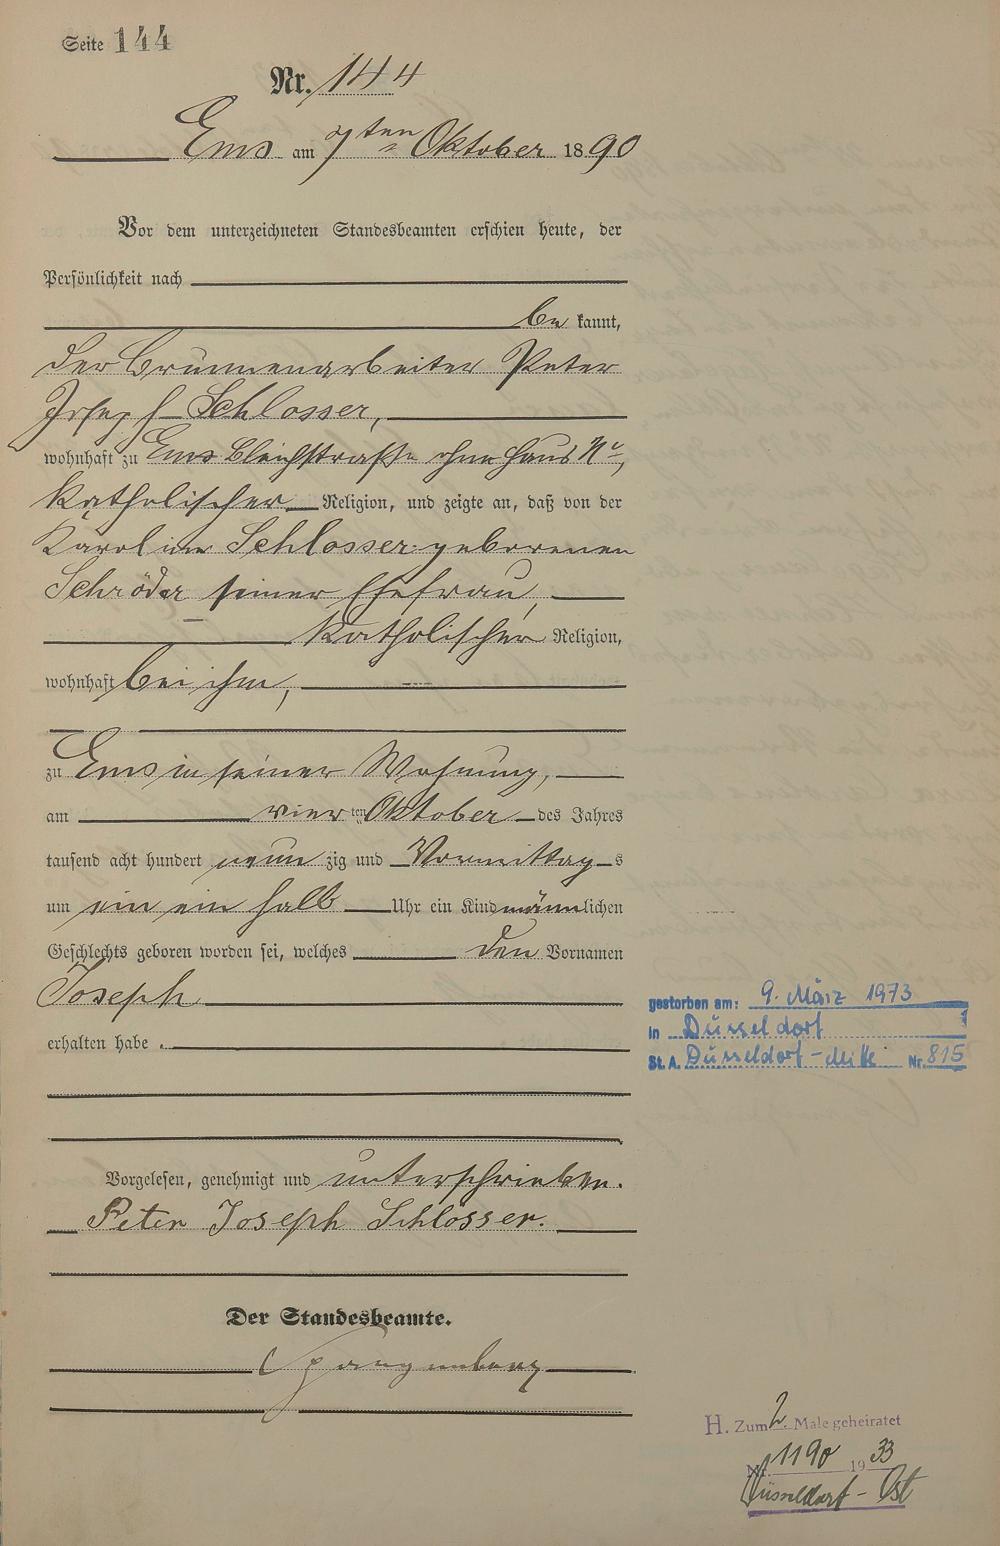 Seite 144
Nr. 144
Ems am 7ten Oktober 1890
Vor dem unterzeichneten Standesbeamten erschien heute, der
Persönlichkeit nach
be kannt,
der Brunnenarbeiter Peter
Joseph Schlosser,
wohnhaft zu Ems Bleichstraße ohne Haus No,
katholischer Religion, und zeigte an, daß von der
Karoline Schlosser geborenen
Schröder seiner Ehefrau,
katholischer Religion,
wohnhaft bei ihm,
zu Ems in seiner Wohnung,
am vier ten Oktober des Jahres
tausend acht hundert neun zig und Vormittag s
um ein ein halb Uhr ein Kind männlichen
Geschlechts geboren worden sei, welches den Vornamen
Joseph
erhalten habe.
gestorben am: 9. März 1973
in Düsseldorf
St. A. Düsseldorf-Mitte Nr. 815
Vorgelesen, genehmigt und unterschrieben.
Peter Joseph Schlosser.
Der Standesbeamte.
H. Zum 2. Male geheiratet
Nr. 1190 1933
Düsseldorf-Ost